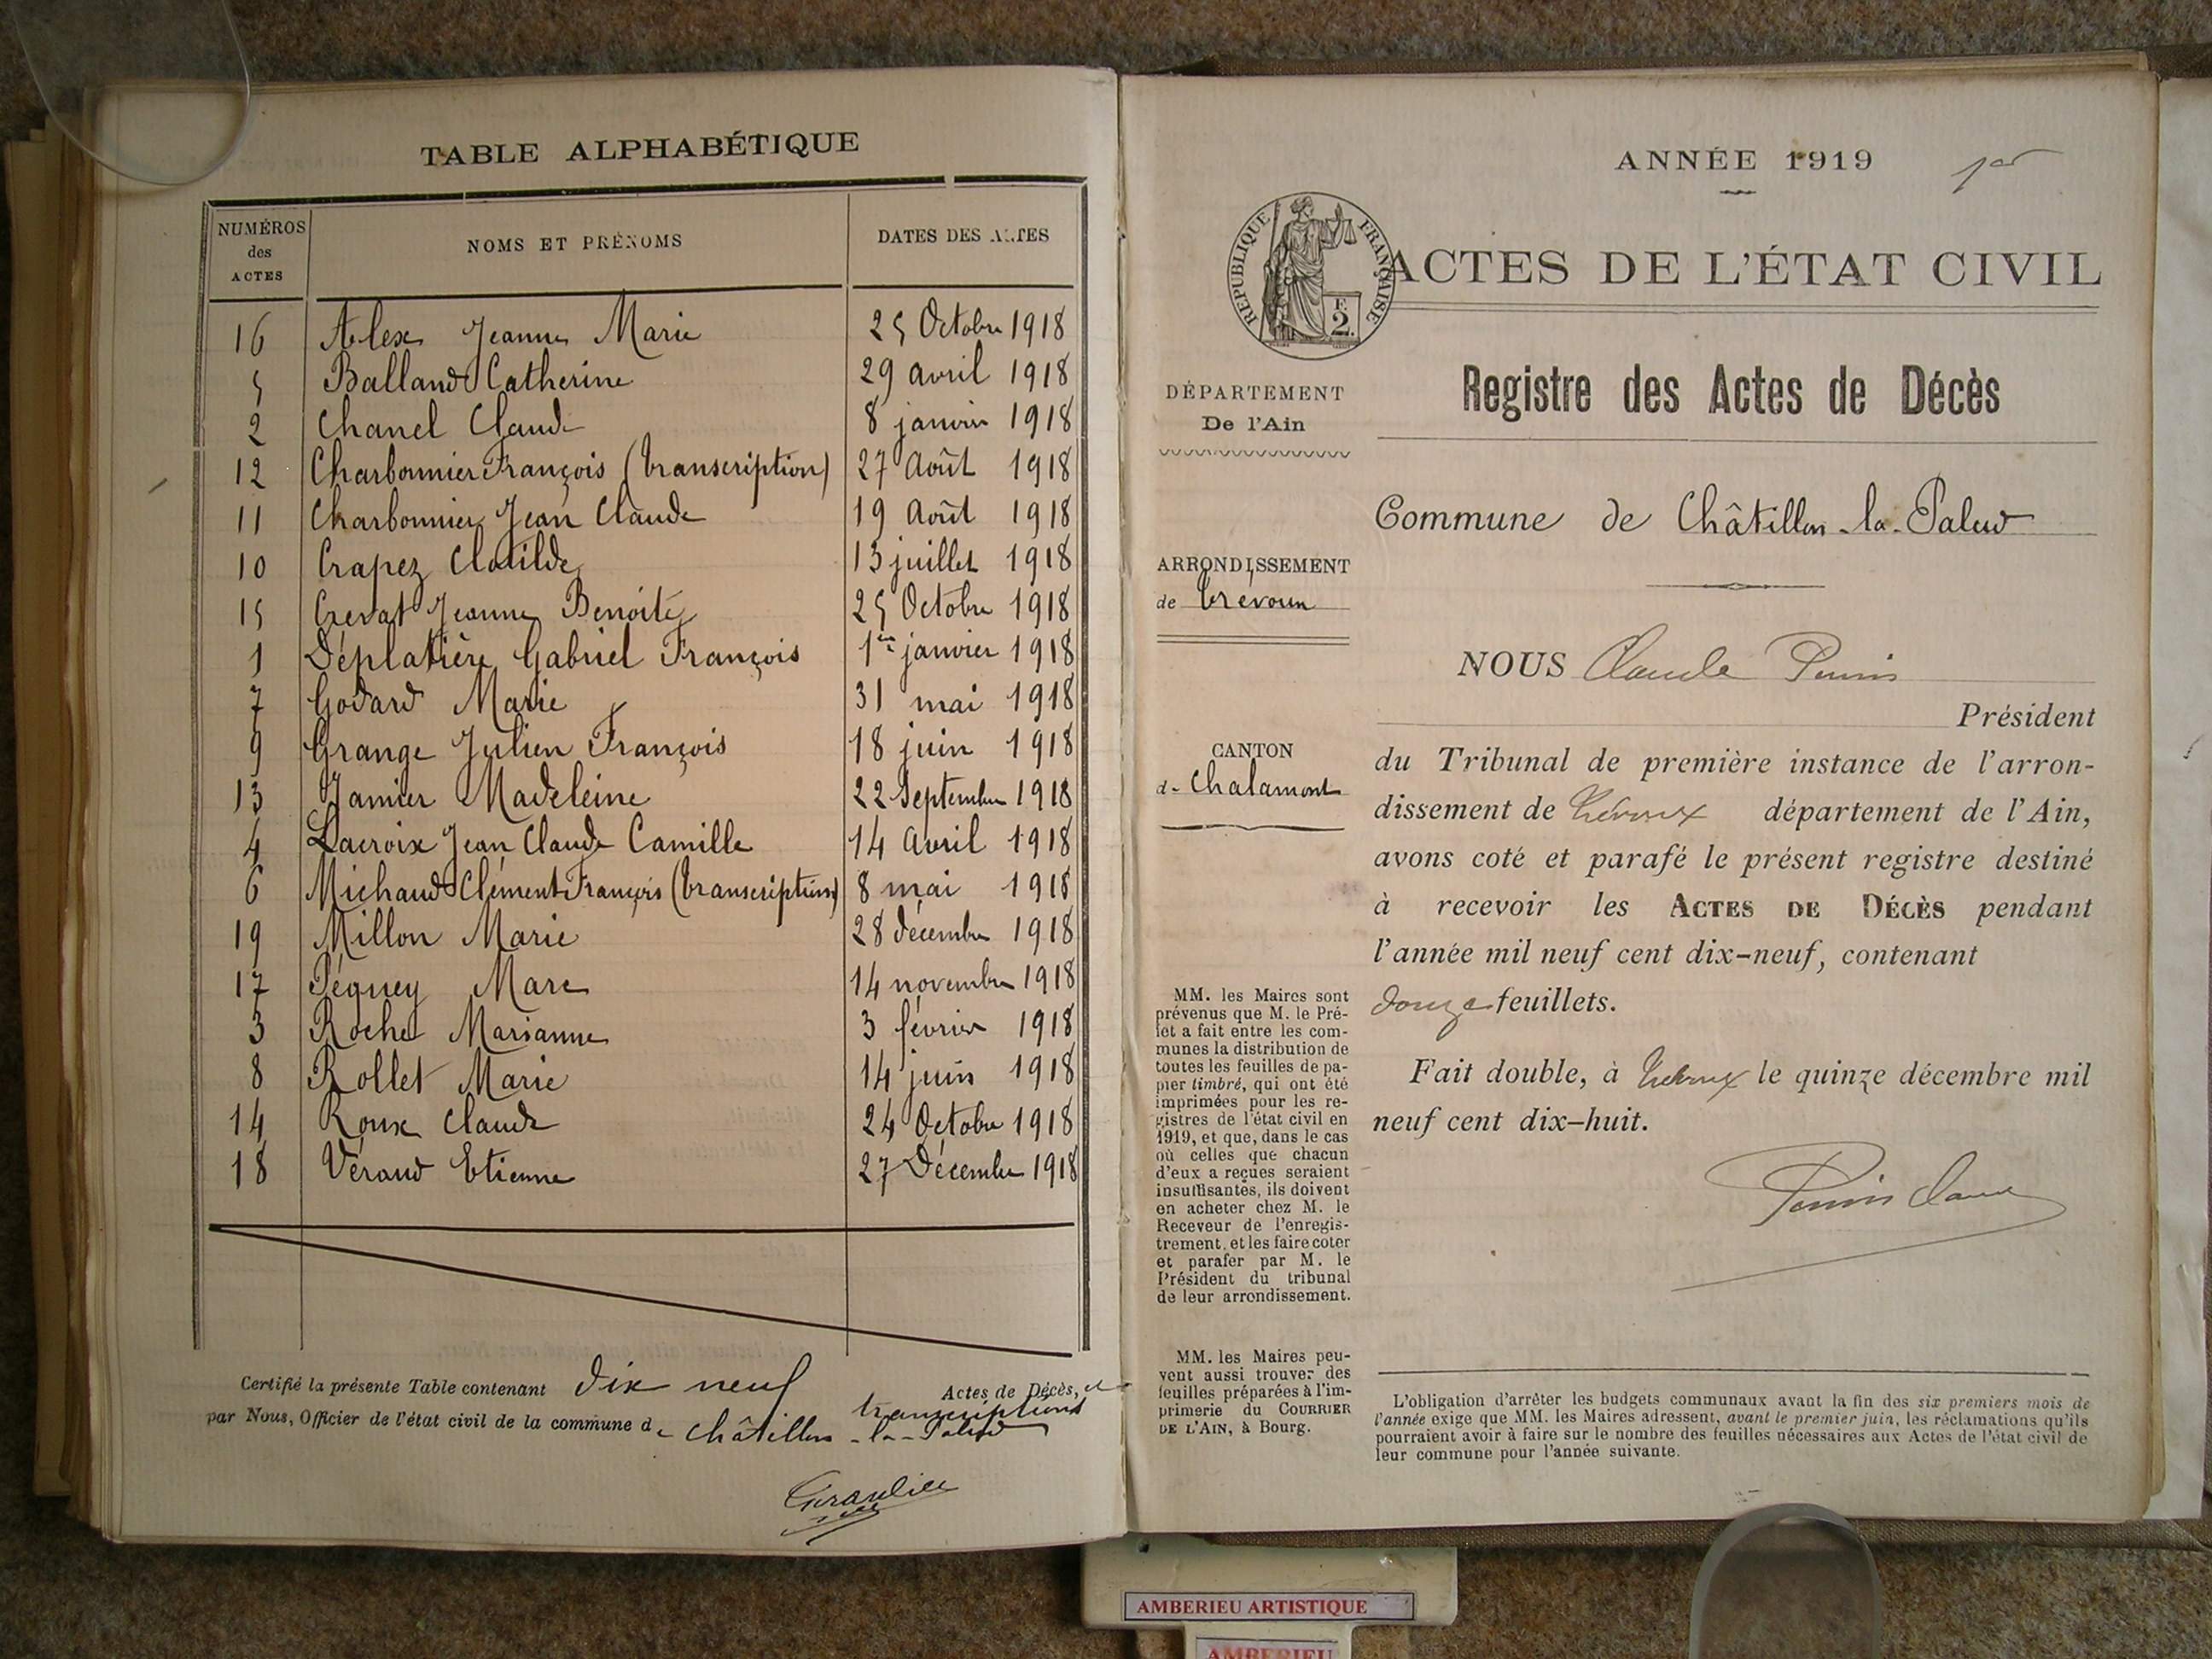 TABLE ALPHABÉTIQUE
NUMÉROS des ACTES
NOMS ET PRÉNOMS
DATES DES ACTES
16 Alex Jeanne Marie 25 Octobre 1918
5 Balland Catherine 29 avril 1918
2 Chanel Claude 8 janvier 1918
12 Charbonnier François (transcription) 27 Août 1918
11 Charbonnier Jean Claude 19 Août 1918
10 Crapez Clotilde 13 juillet 1918
15 Crevat Jeanne Benoite 25 Octobre 1918
1 Déplatière Gabriel François 1er janvier 1918
7 Godard Marie 31 mai 1918
9 Grange Julien François 18 juin 1918
13 Janier Madeleine 22 Septembre 1918
4 Lacroix Jean Claude Camille 14 avril 1918
6 Michaud Clément François (transcription) 8 mai 1918
19 Millon Marie 28 décembre 1918
17 Péguey Marc 14 novembre 1918
3 Roche Marianne 3 février 1918
8 Rollet Marie 14 juin 1918
14 Roux Claude 24 Octobre 1918
18 Véraud Etienne 27 Décembre 1918
Certifié la présente Table contenant dix neuf Actes de Décès, et transcriptions
par Nous, Officier de l'état civil de la commune de Châtillon-la-Palud
ANNÉE 1919 1er
RÉPUBLIQUE FRANÇAISE
F. 2.
ACTES DE L'ÉTAT CIVIL
Registre des Actes de Décès
DÉPARTEMENT
De l'Ain
Commune de Châtillon-la-Palud
ARRONDISSEMENT
de Trévoux
NOUS Claude
Président
CANTON
de Chalamont
du Tribunal de première instance de l'arron-
dissement de Trévoux département de l'Ain,
avons coté et parafé le présent registre destiné
à recevoir les ACTES DE DÉCÈS pendant
l'année mil neuf cent dix-neuf, contenant
douze feuillets.
Fait double, à Trévoux le quinze décembre mil
neuf cent dix-huit.
MM. les Maires sont
prévenus que M. le Pré-
fet a fait entre les com-
munes la distribution de
toutes les feuilles de pa-
pier timbré, qui ont été
imprimées pour les re-
gistres de l'état civil en
1919, et que, dans le cas
où celles que chacun
d'eux a reçues seraient
insuffisantes, ils doivent
en acheter chez M. le
Receveur de l'enregis-
trement, et les faire coter
et parafer par M. le
Président du tribunal
de leur arrondissement.
MM. les Maires peu-
vent aussi trouver des
feuilles préparées à l'im-
primerie du COURRIER
DE L'AIN, à Bourg.
L'obligation d'arrêter les budgets communaux avant la fin des six premiers mois de
l'année exige que MM. les Maires adressent, avant le premier juin, les réclamations qu'ils
pourraient avoir à faire sur le nombre des feuilles nécessaires aux Actes de l'état civil de
leur commune pour l'année suivante.
AMBERIEU ARTISTIQUE
AMBERIEU